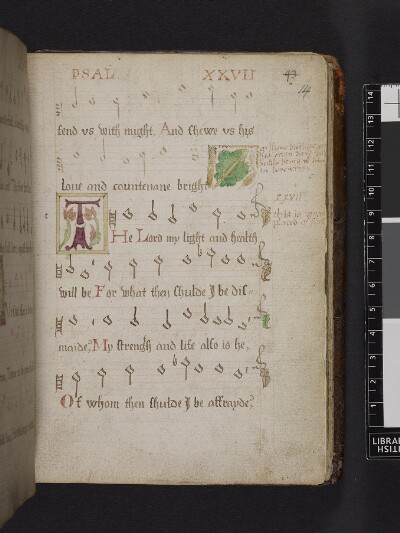 PSAL XXVII
43
14
fend vs with might. And shewe vs his
loue and countenane bright
XXVII
this is
placed
THe Lord my light and health
will be For what then shulde J be dis=
maide? My strengh and life also is he,
Of whom then shulde J be affrayde?
1 2 3 4 5 6 7 8 9 10 11 12 13 14
LIBRAR
HSITI